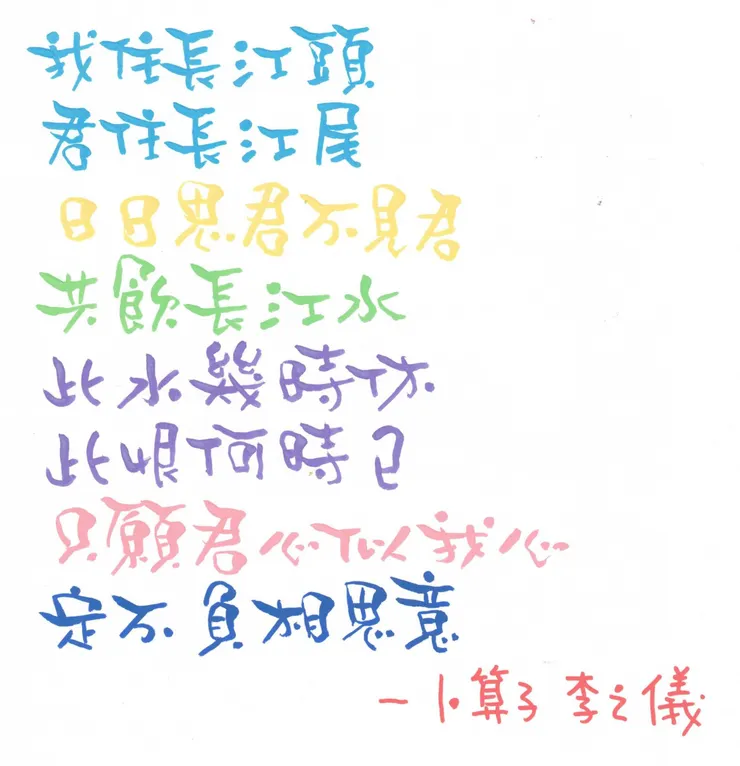 我住長江頭
君住長江尾
日日思君不見君
共飲長江水
此水幾時休
此恨何時已
只願君心似我心
定不負相思意
—卜算子 李之儀